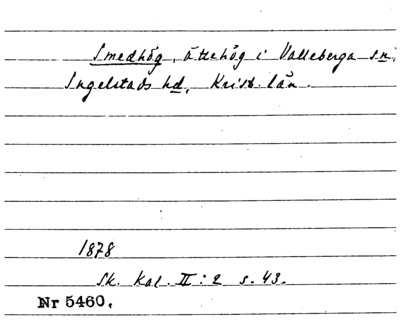 Smedhög, ättehög i Valleberga sn,
Ingelstads hd, Krist. län.
1878
Sk. Kal. II:2 s. 43.
Nr 5460.